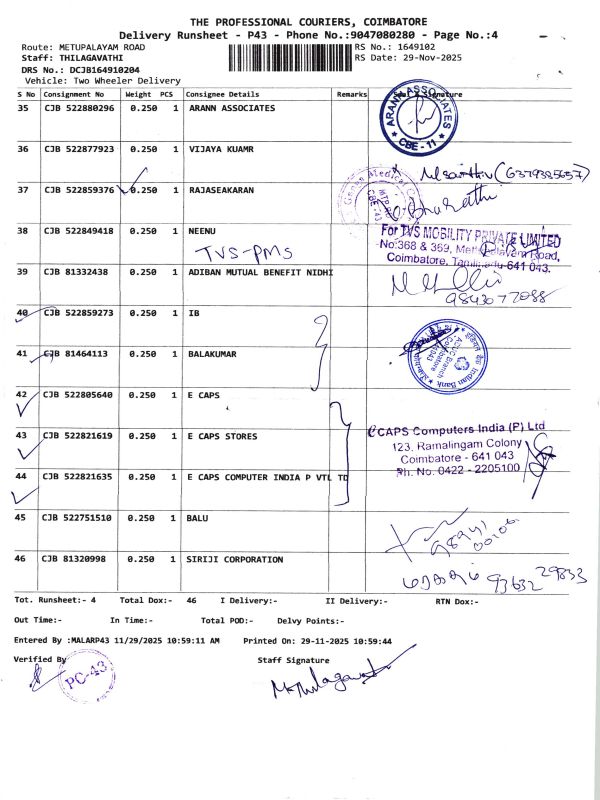 THE PROFESSIONAL COURIERS, COIMBATORE
Delivery Runsheet - P43 - Phone No.:9047080280 - Page No.:4
Route: METUPALAYAM ROAD RS No.: 1649102
Staff: THILAGAVATHI RS Date: 29-Nov-2025
DRS No.: DCJB164910204
Vehicle: Two Wheeler Delivery
S No Consignment No Weight PCS Consignee Details Remarks Signature
35 CJB 522880296 0.250 1 ARANN ASSOCIATES
ARANN ASSOCIATES
CBE - 11
36 CJB 522877923 0.250 1 VIJAYA KUAMR
37 CJB 522859376 0.250 1 RAJASEAKARAN
38 CJB 522849418 0.250 1 NEENU
TVS-PMS
For TVS MOBILITY PRIVATE LIMITED
No:368 & 369, Road,
Coimbatore, Tamilnadu-641 043.
39 CJB 81332438 0.250 1 ADIBAN MUTUAL BENEFIT NIDHI
9843077088
40 CJB 522859273 0.250 1 IB
41 CJB 81464113 0.250 1 BALAKUMAR
Indian Bank
42 CJB 522805640 0.250 1 E CAPS
43 CJB 522821619 0.250 1 E CAPS STORES
eCAPS Computers India (P) Ltd
123, Ramalingam Colony
Coimbatore - 641 043
Ph. No. 0422 - 2205100
44 CJB 522821635 0.250 1 E CAPS COMPUTER INDIA P VTL TD
45 CJB 522751510 0.250 1 BALU
46 CJB 81320998 0.250 1 SIRIJI CORPORATION
93632 29833
Tot. Runsheet:- 4 Total Dox:- 46 I Delivery:- II Delivery:- RTN Dox:-
Out Time:- In Time:- Total POD:- Delvy Points:-
Entered By :MALARP43 11/29/2025 10:59:11 AM Printed On: 29-11-2025 10:59:44
Verified By Staff Signature
PC-43